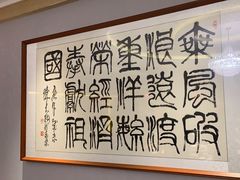 乘風破
浪遠渡
重洋繁
榮經濟
奉獻祖
國